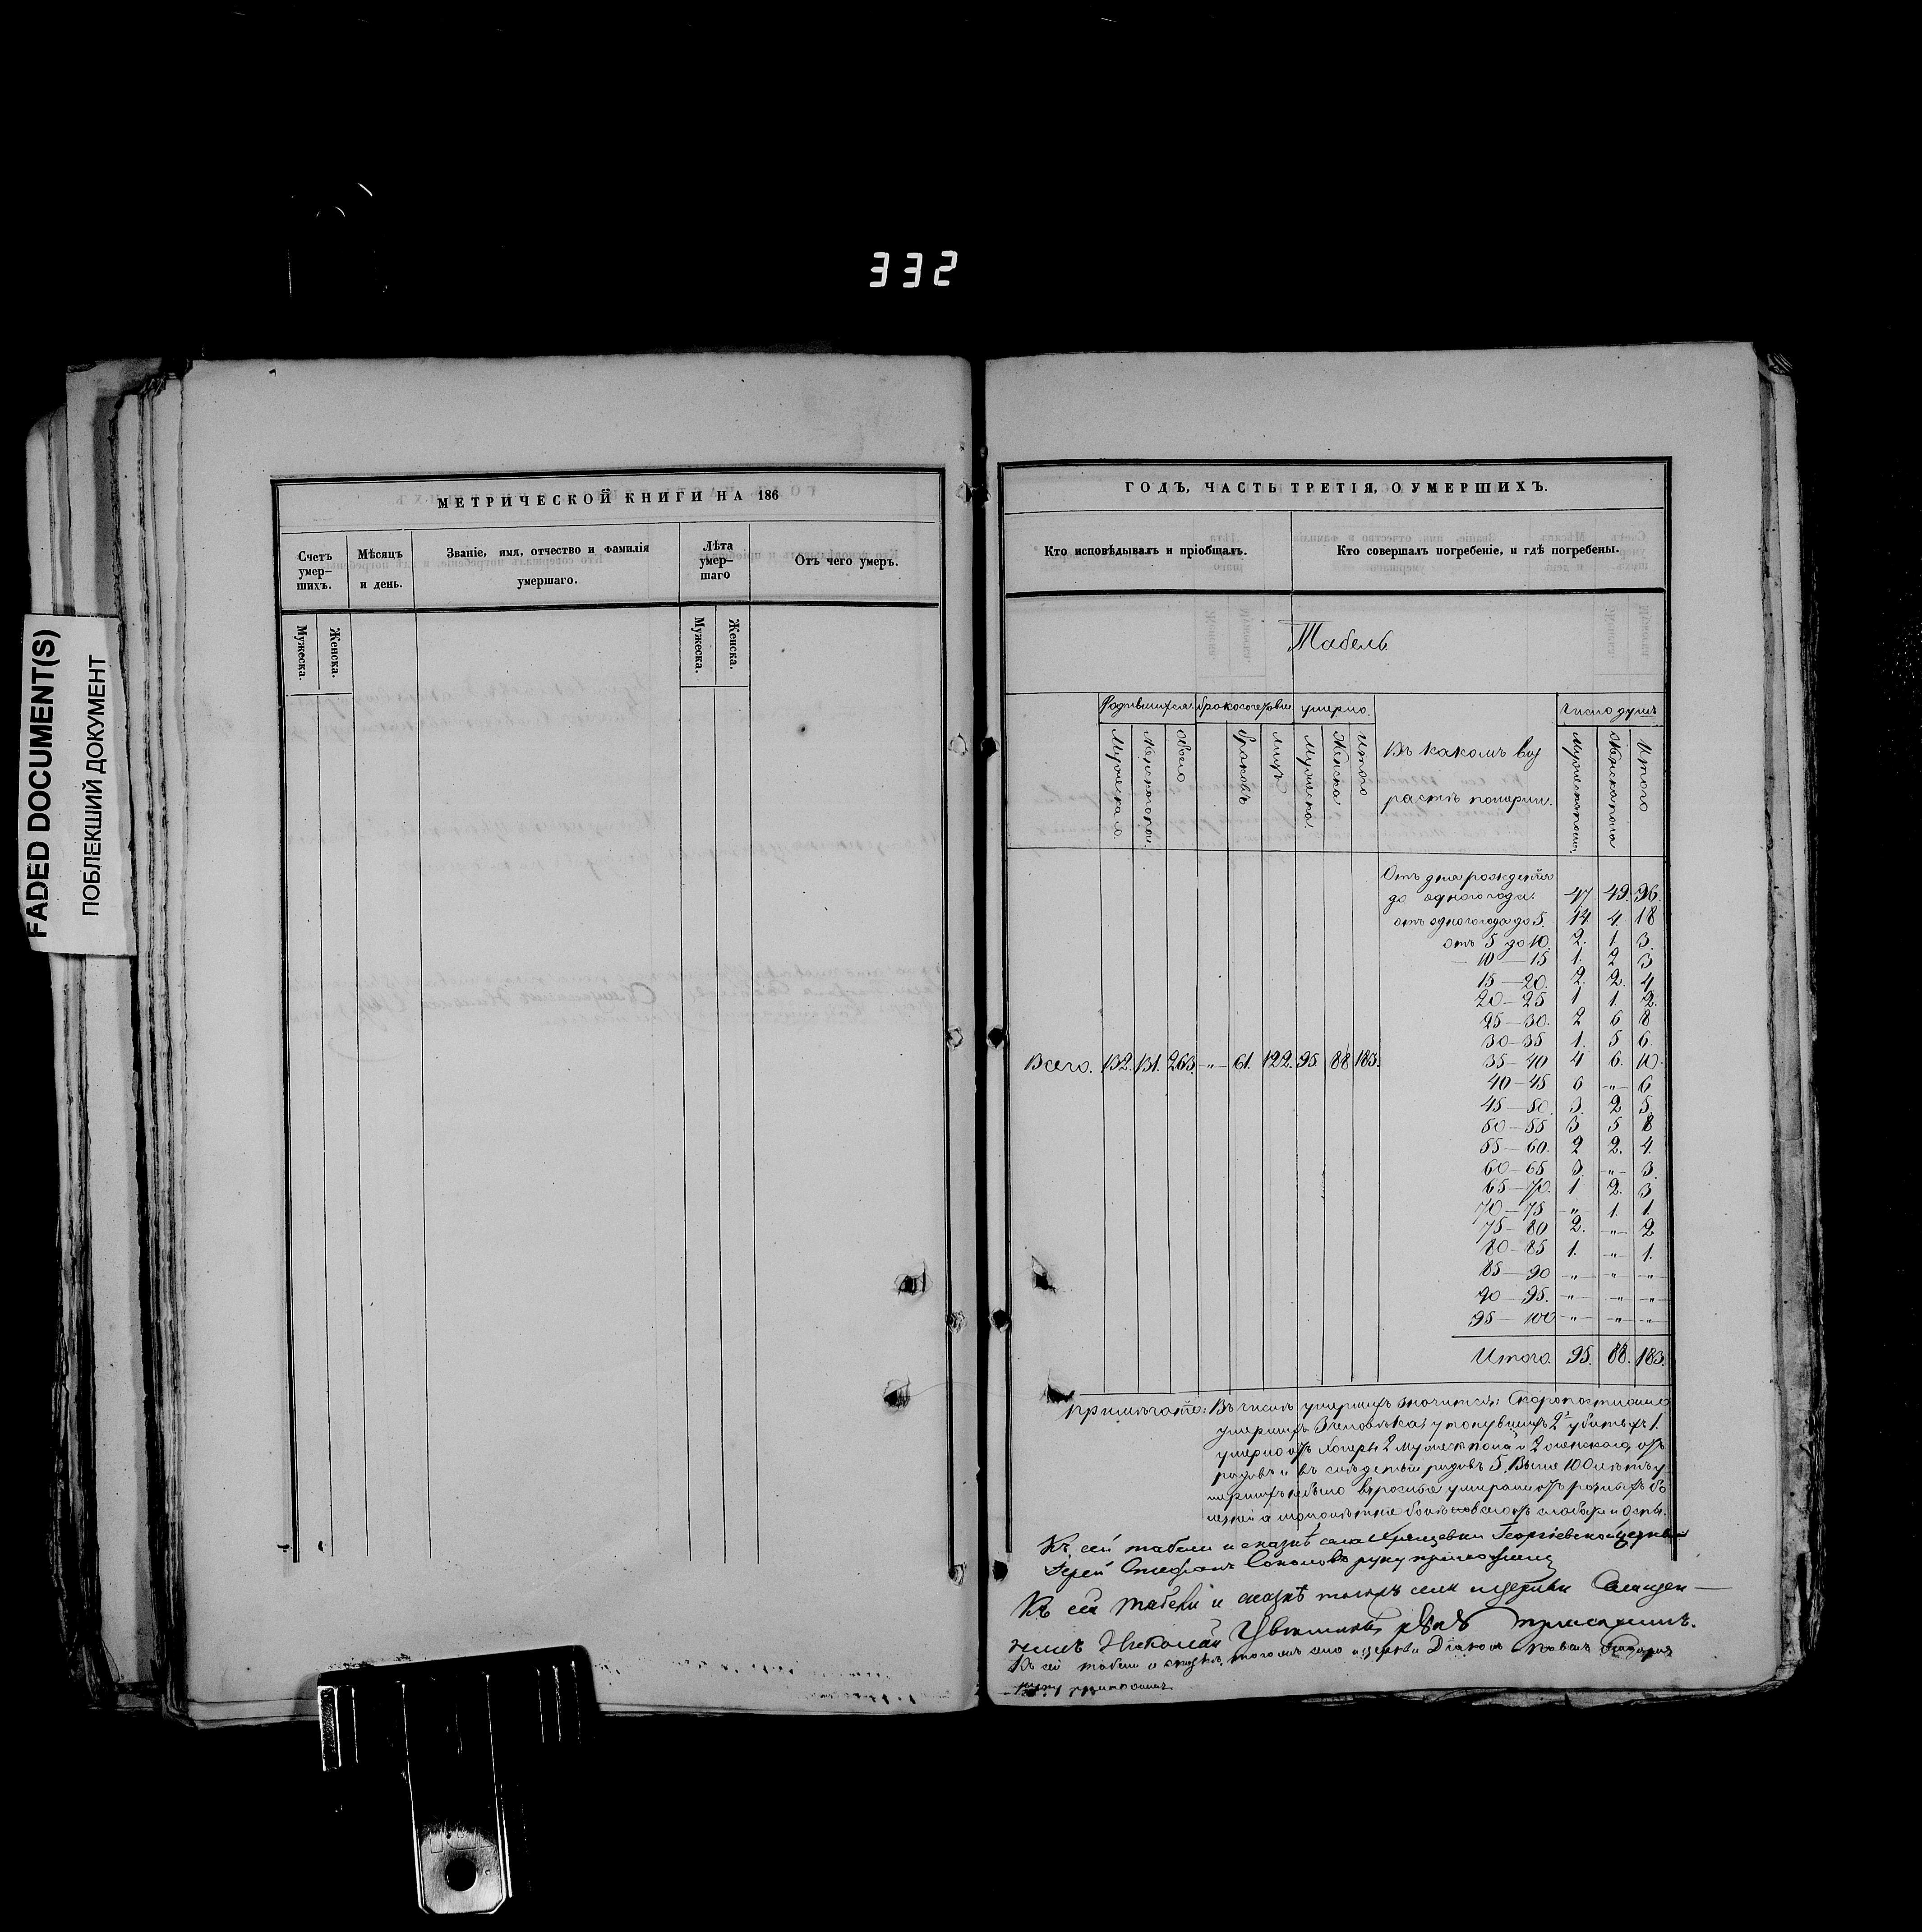 332
FADED DOCUMENT(S)
ПОБЛЕКШИЙ ДОКУМЕНТ
МЕТРИЧЕСКОЙ КНИГИ НА 186
Счетъ умер- шихъ.
Мѣсяцъ и день.
Званіе, имя, отчество и фамилія умершаго.
Лѣта умер- шаго
Отъ чего умеръ.
Мужеска.
Женска.
Мужеска.
Женска.
ГОДЪ, ЧАСТЬ ТРЕТІЯ, О УМЕРШИХЪ.
Кто исповѣдывалъ и пріобщалъ.
Кто совершалъ погребеніе, и гдѣ погребены.
Табель
Родившихся. умерло. Число душъ
обоего браковъ лицъ Мужеска. Женска Итого
Въ какомъ воз
растѣ померли.
Итого
Отъ дня рожденія
до одного года. 47 49. 96.
отъ одного года до 5. 14. 4. 18
отъ 5 до 10. 2. 1. 3.
— 10 — 15 1. 2 3
15 — 20. 2. 2. 4
20 — 25 1 1. 2.
25 — 30. 2 6 8
30 — 35 1. 5 6.
Всего. 132. 131. 263. -„- 61. 122. 95. 88 183.
35 — 40 4 6. 10.
40 — 45 6 -„- 6
45 — 50. 3. 2 5.
50 — 55 3 5 8
55 — 60. 2 2. 4.
60 — 65 3. -„- 3
65 — 70. 1 2. 3
70 — 75 -„- 1. 1.
75 — 80 2. -„- 2
80 — 85 1. -„- 1.
85 — 90 -„- -„- -„-
90 — 95. -„- -„- -„-
95 — 100 -„- -„- -„-
Итого. 95. 88. 183.
Въ числѣ умершихъ значится: Скоропостижно
умершихъ 3 человѣка; утонувшихъ 2, убитыхъ 1.
умерло отъ 2 и 2 женскаго, отъ
родовъ и въ родовъ 5. Выше 100 лѣтъ у
мершихъ небыло взрослые умирали отъ разныхъ бо
лезней а отъ слабости и Оспы.
Къ сей табели и сказкѣ села Хрящевки Георгіевской церкви
Іерей Стефанъ Соколовъ руку приложилъ
Къ сей табели и сказкѣ тогожъ села и церкви Священ-
никъ Николай Цвѣтковъ приложилъ.
Къ сей табели и тогожъ села и церкви Діаконъ Павелъ
руку приложилъ